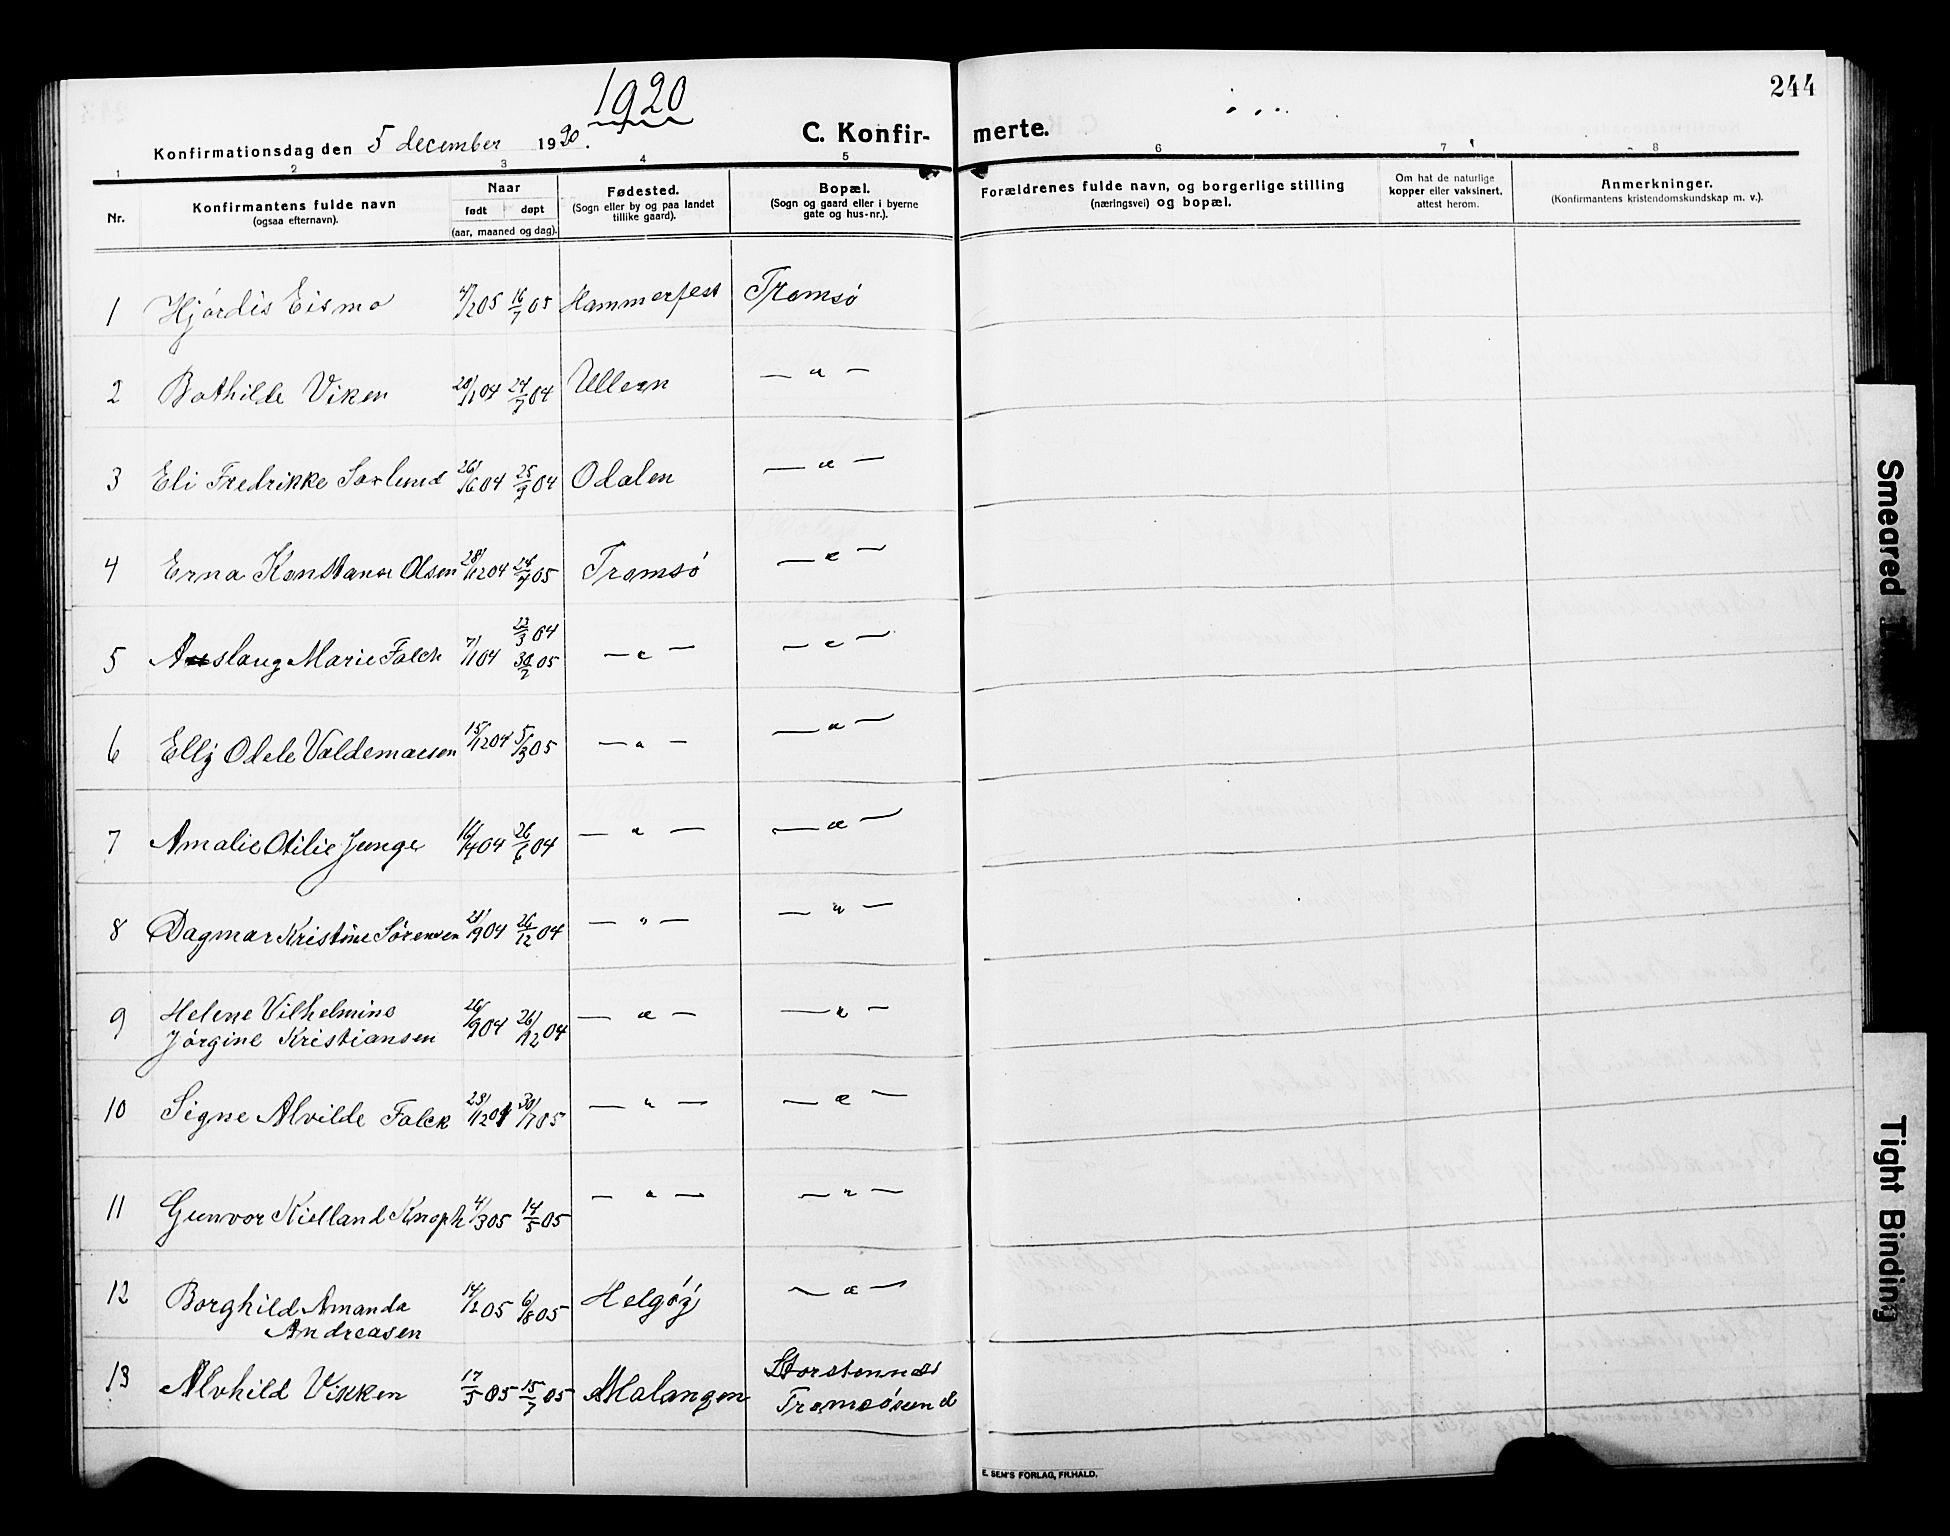 1920
244
Konfirmationsdag den 5 december 1920.
C. Konfir- merte.
1 2 3 4 5 6 7 8
Nr.
Konfirmantens fulde navn
(ogsaa efternavn).
Naar
født døpt
(aar, maaned og dag).
Fødested.
(Sogn eller by og paa landet
tillike gaard).
Bopæl.
(Sogn og gaard eller i byerne
gate og hus-nr.).
Forældrenes fulde navn, og borgerlige stilling
(næringsvei) og bopæl.
Om hat de naturlige
kopper eller vaksinert,
attest herom.
Anmerkninger.
(Konfirmantens kristendomskundskap m. v.).
1 Hjórdis Eismo /205 16/7 05 Hammerfest Tromsó
2 Bothilde Viken 20/1 04 24/7 04 Ullern — " —
3 Eli Fredrikke Sorlund 26/6 04 25/9 04 Odalen — " —
4 Erna Konstanse Olsen 28/12 04 24/4 05 Tromsó — " —
5 Aaslaug Marie Falch 7/1 04 13/3 04 — " — — " —
30/2 05
6 Elly Odele Valdemarsen 15/12 04 5/3 05 — " — — " —
7 Amalie Otilie Junge 16/4 04 26/6 04 — " — — " —
8 Dagmar Kristine Sórensen 21/9 04 26/12 04 — " — — " —
9 Helene Vilhelmine
Jórgine Kristiansen 26/9 04 26/12 04 — " — — " —
10 Signe Alvilde Falck 23/12 04 30/7 05 — " — — " —
11 Gunvor Kielland Knoph 4/3 05 14/5 05 — " — — " —
12 Borghild Amanda
Andreasen 14/2 05 6/8 05 Helgóý — " —
13 Alvhild Vikken 17/5 05 15/7 05 Malangen Storstennes
Tromsósund
E. SEM'S FORLAG, FR.HALD.
Smeared
Tight Binding